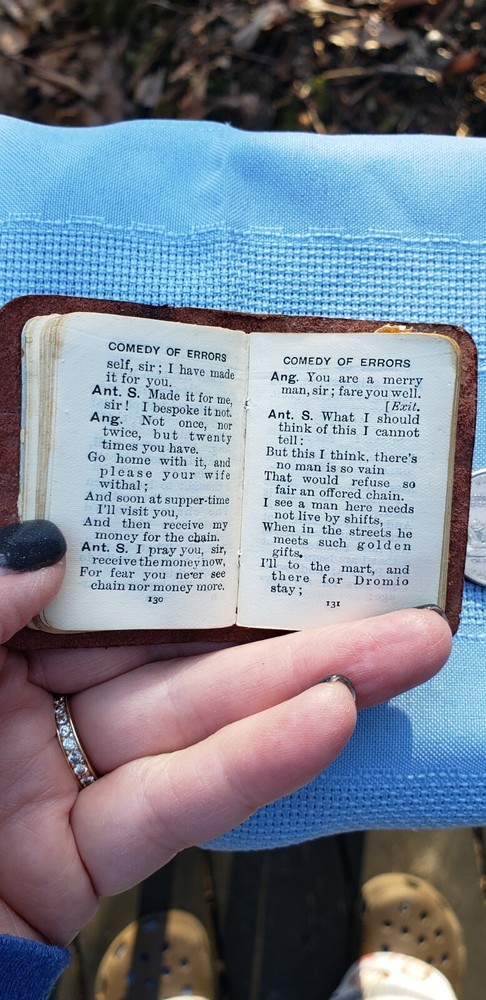 COMEDY OF ERRORS
self, sir; I have made
it for you.
Ant. S. Made it for me,
sir! I bespoke it not.
Ang. Not once, nor
twice, but twenty
times you have.
Go home with it, and
please your wife
withal;
And soon at supper-time
I'll visit you,
And then receive my
money for the chain.
Ant. S. I pray you, sir,
receive the money now,
For fear you ne'er see
chain nor money more.
130
COMEDY OF ERRORS
Ang. You are a merry
man, sir; fare you well.
[Exit.
Ant. S. What I should
think of this I cannot
tell:
But this I think, there's
no man is so vain
That would refuse so
fair an offered chain.
I see a man here needs
not live by shifts,
When in the streets he
meets such golden
gifts.
I'll to the mart, and
there for Dromio
stay;
131